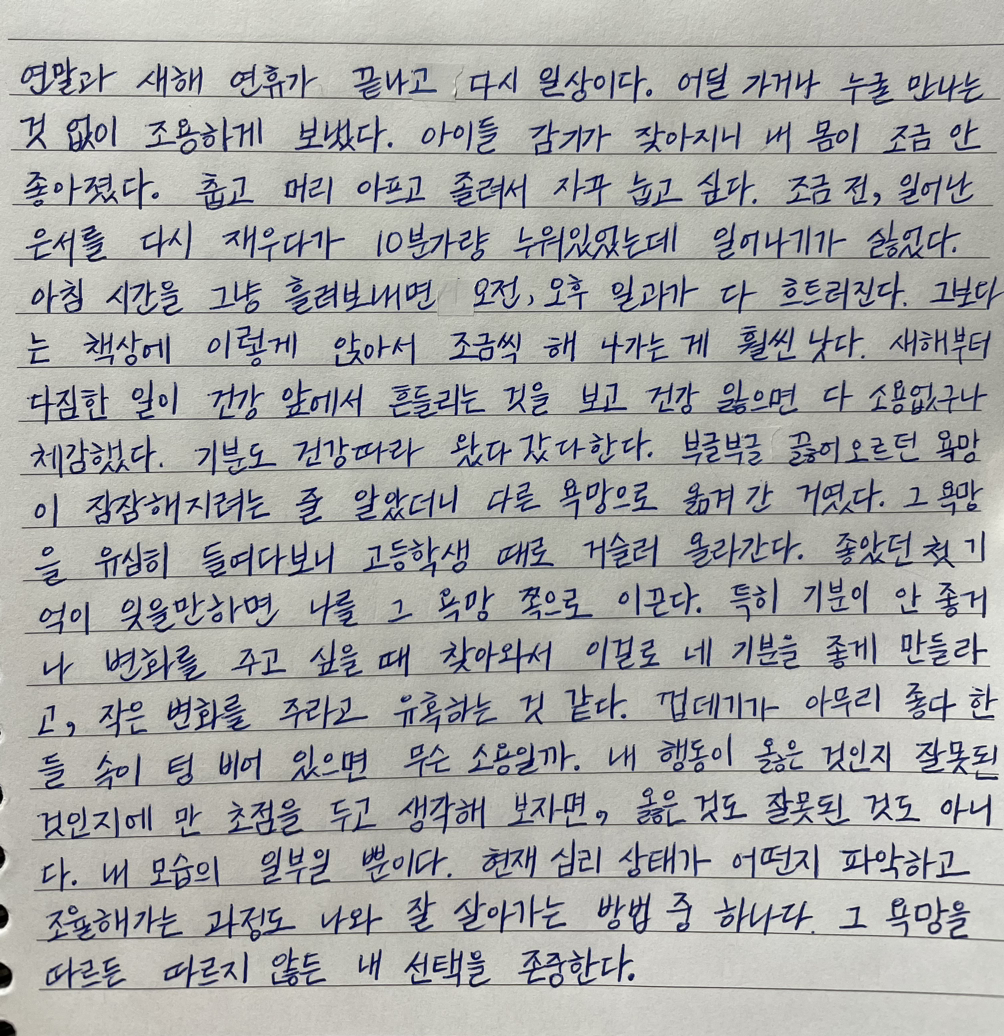 연말과 새해 연휴가 끝나고 다시 일상이다. 어딜 가거나 누굴 만나는
것 없이 조용하게 보냈다. 아이들 감기가 잦아지니 내 몸이 조금 안
좋아졌다. 춥고 머리 아프고 졸려서 자꾸 눕고 싶다. 조금 전, 일어난
은서를 다시 재우다가 10분가량 누워있었는데 일어나기가 싫었다.
아침 시간을 그냥 흘려보내면 오전, 오후 일과가 다 흐트러진다. 그보다
는 책상에 이렇게 앉아서 조금씩 해 나가는 게 훨씬 낫다. 새해부터
다짐한 일이 건강 앞에서 흔들리는 것을 보고 건강 잃으면 다 소용없구나
체감했다. 기분도 건강따라 왔다 갔다한다. 부글부글 끓어오르던 욕망
이 잠잠해지려는 줄 알았더니 다른 욕망으로 옮겨 간 거였다. 그 욕망
을 유심히 들여다보니 고등학생 때로 거슬러 올라간다. 좋았던 첫 기
억이 잊을만하면 나를 그 욕망 쪽으로 이끈다. 특히 기분이 안 좋거
나 변화를 주고 싶을 때 찾아와서 이걸로 네 기분을 좋게 만들라
고, 작은 변화를 주라고 유혹하는 것 같다. 껍데기가 아무리 좋다 한
들 속이 텅 비어 있으면 무슨 소용일까. 내 행동이 옳은 것인지 잘못된
것인지에 만 초점을 두고 생각해 보자면, 옳은 것도 잘못된 것도 아니
다. 내 모습의 일부일 뿐이다. 현재 심리 상태가 어떤지 파악하고
조율해가는 과정도 나와 잘 살아가는 방법 중 하나다. 그 욕망을
따르든 따르지 않든 내 선택을 존중한다.